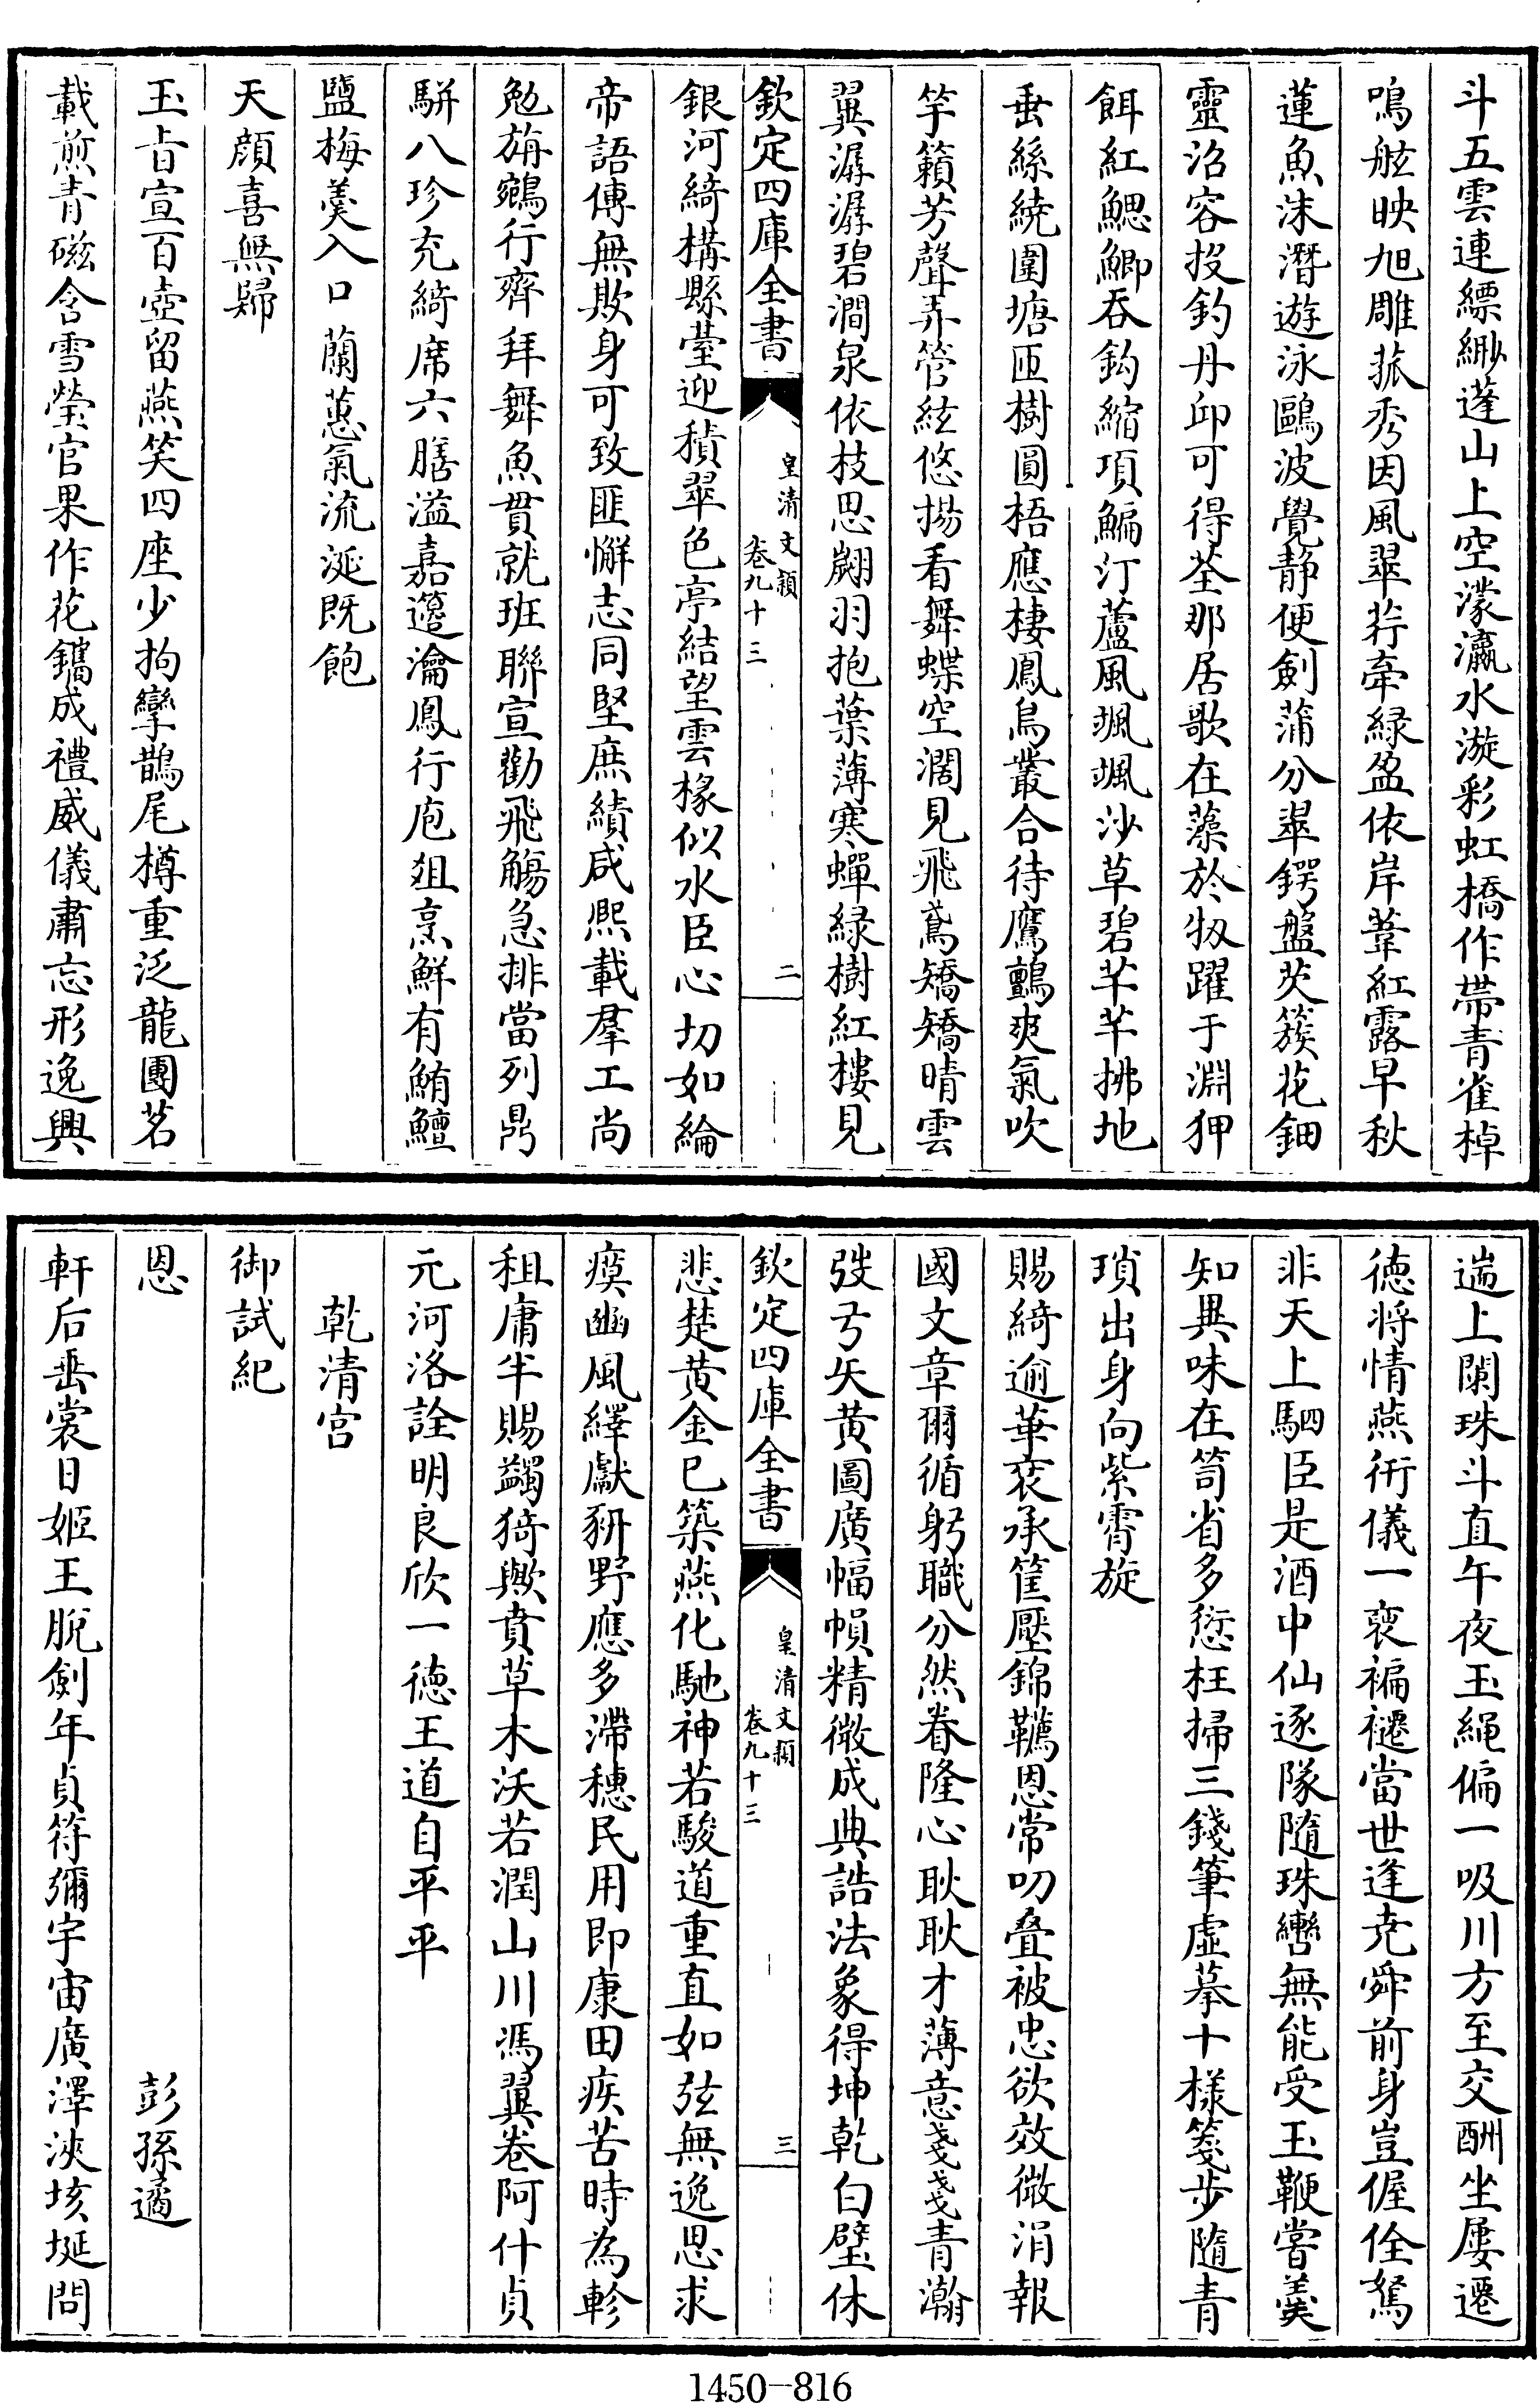 斗五雲連縹緲蓬山上空濛瀛水漩彩虹橋作帶青雀棹
鳴舷映旭雕菰秀因風翠荇牽緑盈依岸葦紅露早秋
蓮魚沫潛遊泳鷗波覺静便劍蒲分翠鍔盤芡簇花鈿
靈沼容投釣丹邱可得荃那居歌在藻於牣躍于淵狎
餌紅鰓鯽吞鈎縮項鯿汀蘆風颯颯沙草碧芊芊拂地
垂絲繞圍塘匝樹圓梧應棲鳳鳥叢合待鷹鸇爽氣吹
竽籟芳聲弄管絃悠揚看舞蝶空濶見飛鳶矯矯晴雲
翼潺潺碧澗泉依枝思翽羽抱葉薄寒蟬緑樹紅樓見
欽定四庫全書
皇清文頴
卷九十三
二
銀河綺構縣臺迎積翠色亭結望雲椽似水臣心切如綸
帝語傳無欺身可致匪懈志同堅庶績咸熙載羣工尚
勉旃鵷行齊拜舞魚貫就班聯宣勸飛觴急排當列鼎
駢八珍充綺席六膳溢嘉籩瀹鳳行庖爼烹鮮有鮪鱣
鹽梅羹入口蘭蕙氣流涎既飽
天顔喜無歸
玉㫖宣百壺留燕笑四座少拘攣鵲尾樽重泛龍團茗
載煎青磁含雪瑩官果作花鐫成禮威儀肅忘形逸興
遄上闌珠斗直午夜玉繩偏一吸川方至交酬坐屢遷
德将情燕衎儀一衷褊褼當世逢尭舜前身豈偓佺駑
非天上駟臣是酒中仙逐隊隨珠轡無能受玉鞭嘗羮
知異味在笥省多愆枉掃三錢筆虚摹十樣箋步隨青
瑣出身向紫霄旋
賜綺逾華衮承筐壓錦韉恩常叨叠被忠欲效微涓報
國文章爾循躬職分然眷隆心耿耿才薄意戔戔青瀚
弢弓矢黄圖廣幅幀精微成典誥法象得坤乾白璧休
欽定四庫全書
皇清文頴
卷九十三
三
悲楚黄金已築燕化馳神若駿道重直如弦無逸思求
瘼豳風繹獻豜野應多滯穗民用即康田疾苦時為軫
租庸半賜蠲猗歟賁草木沃若潤山川馮翼卷阿什貞
元河洛詮明良欣一德王道自平平
乾清宫
御試紀
恩
彭孫遹
軒后垂裳日姬王脱劍年貞符彌宇宙廣澤浹垓埏問
1450-816